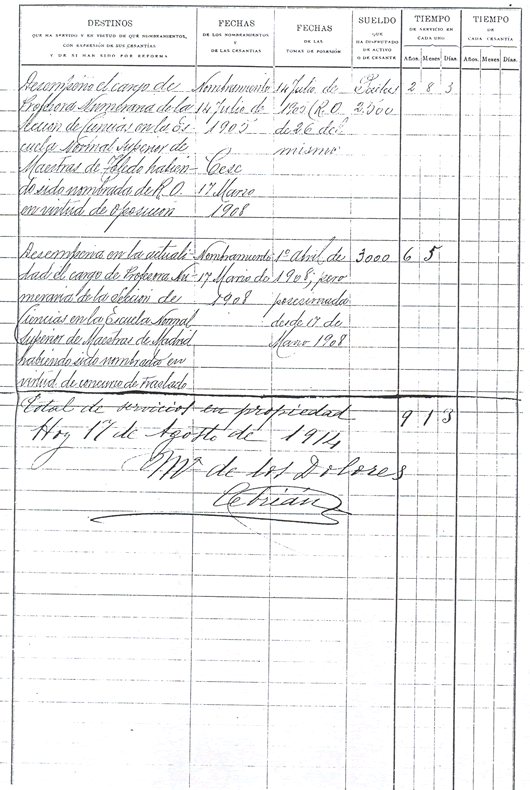 DESTINOS
QUE HA SERVIDO Y EN VIRTUD DE QUE NOMBRAMIENTOS,
CON EXPRESIÓN DE SUS CESANTÍAS
Y DE SI HAN SIDO POR REFORMA
FECHAS
DE LOS NOMBRAMIENTOS
Y
DE LAS CESANTÍAS
FECHAS
DE LAS
TOMAS DE POSESIÓN
SUELDO
QUE HA DISFRUTADO
DE ACTIVO
O DE CESANTE
TIEMPO
DE SERVICIO EN
CADA UNO
Años. Meses Días.
TIEMPO
DE
CADA CESANTÍA
Años. Meses Días.
Desempeñó el cargo de
Profesora Numeraria de la
Sección de Ciencias en la Es-
cuela Normal Superior de
Maestras de Toledo habien-
do sido nombrada de R.O.
en virtud de oposición
Nombramiento
14 Julio de
1905
Cese
17 Marzo
1908
14 Julio de
1905 (R.O.
de 26 del
mismo
Psetas
2500
2 8 3
Desempeña en la actuali-
dad el cargo de Profesora Nu-
meraria de la Sección de
Ciencias en la Escuela Normal
Superior de Maestras de Madrid
habiendo sido nombrada en
virtud de concurso de traslado
Nombramiento
17 Marzo de
1908
1º Abril de
1908, pero
posesionada
desde 17 de
Marzo 1908
3000
6 5
Total de servicios en propiedad
9 1 3
Hoy 17 de Agosto de 1914
Mª de los Dolores
Cebrián